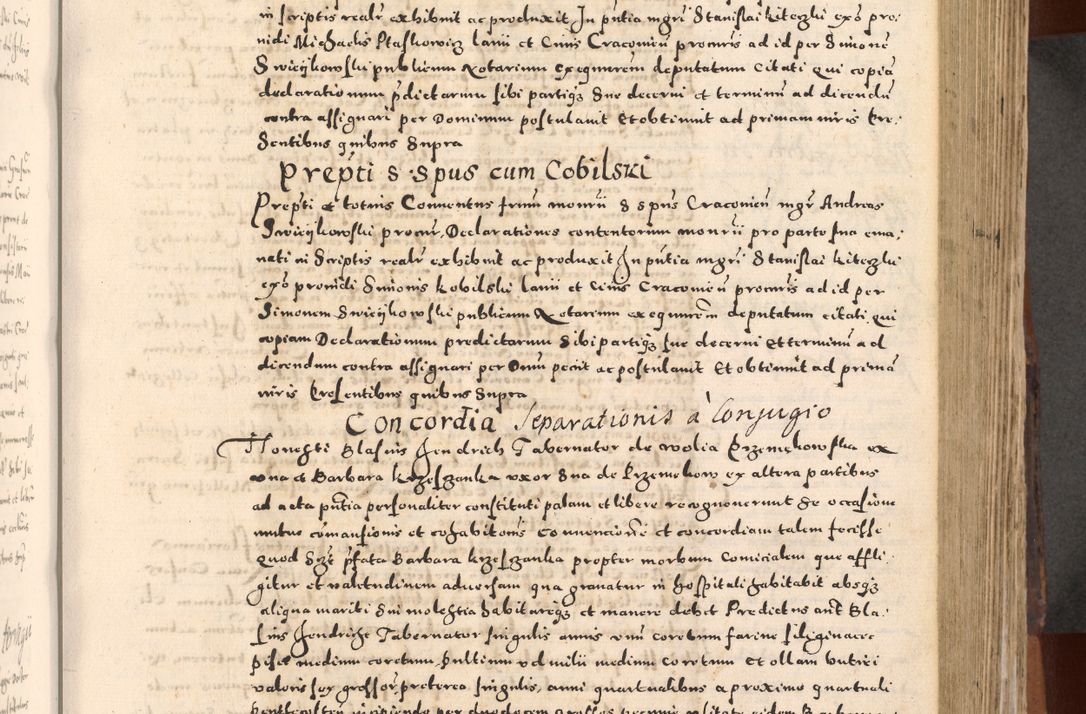 in scriptis realr exhibuit ac produxit In pntia mgri Stanislai kiteczki exo pro:
nidi Michaelis Ptaskowicz lanii et Ciuis Cracouien procuris ad id per Simone
Swieijkowski publicum Notarium exequutem deputatum Citati qui copia
declarationum pdictarum sibi partiqz sue decerni et terminu ad dicendu
contra assignari per Dominum postulauit Et obtinuit ad primam iuris Pre:
Sentibus quibus Supra
Prepti S Spus cum Cobilski
Prepti et totius Conuentus frum monrii S Spus Cracouien mgr Andreas
Swieijkowski procur. Declarationes contentorum monrii pro parte sua ema:
nati in Scriptis realr exhibuit ac produxit In pntia mgri Stanislai kiteczki
exo prouidi Simonis kobilski lanii et Ciuis Cracouien procuris ad id per
Simonem Swieijkowski publicum Notarium exequutem deputatum citati qui
copiam Declarationum predictarum Sibi partiqz sue decerni Et terminu ad
dicendum contra assignari per Dnum peciit ac postulauit Et obtinuit ad prima
iuris Presentibus quibus Supra
Concordia Separationis à Conjugio
Honesti Blasius Jendrich Tabernator de wolia Przemekowska ex
vna et Barbara uxor Sua de Przemekow ex altera partibus
ad acta pntia personaliter constituti palam et libere recognouerunt Se occasione
mutue comansionis et cohabitonis conuencione et concordiam talem fecisse
quod Sczt pfata Barbara propter morbum Comicialem que affli:
gitur et valetudinem aduersam qua grauatur in hospitali habitabit absqz
aliqua mariti Sui molestia habitareqz et manere debet Predictus ant Bla:
sius Jendrich Tabernator singulis annis vnu coretum farine siliginacee
pise medium coretum, pultium vel milii medium Coretum Et ollam butiri
valoris sex grossor preterea singulis, anni quartualibus a proximo quartuali
pentecosten incipiendo per duodecem grossos pecunie eidem Barbare